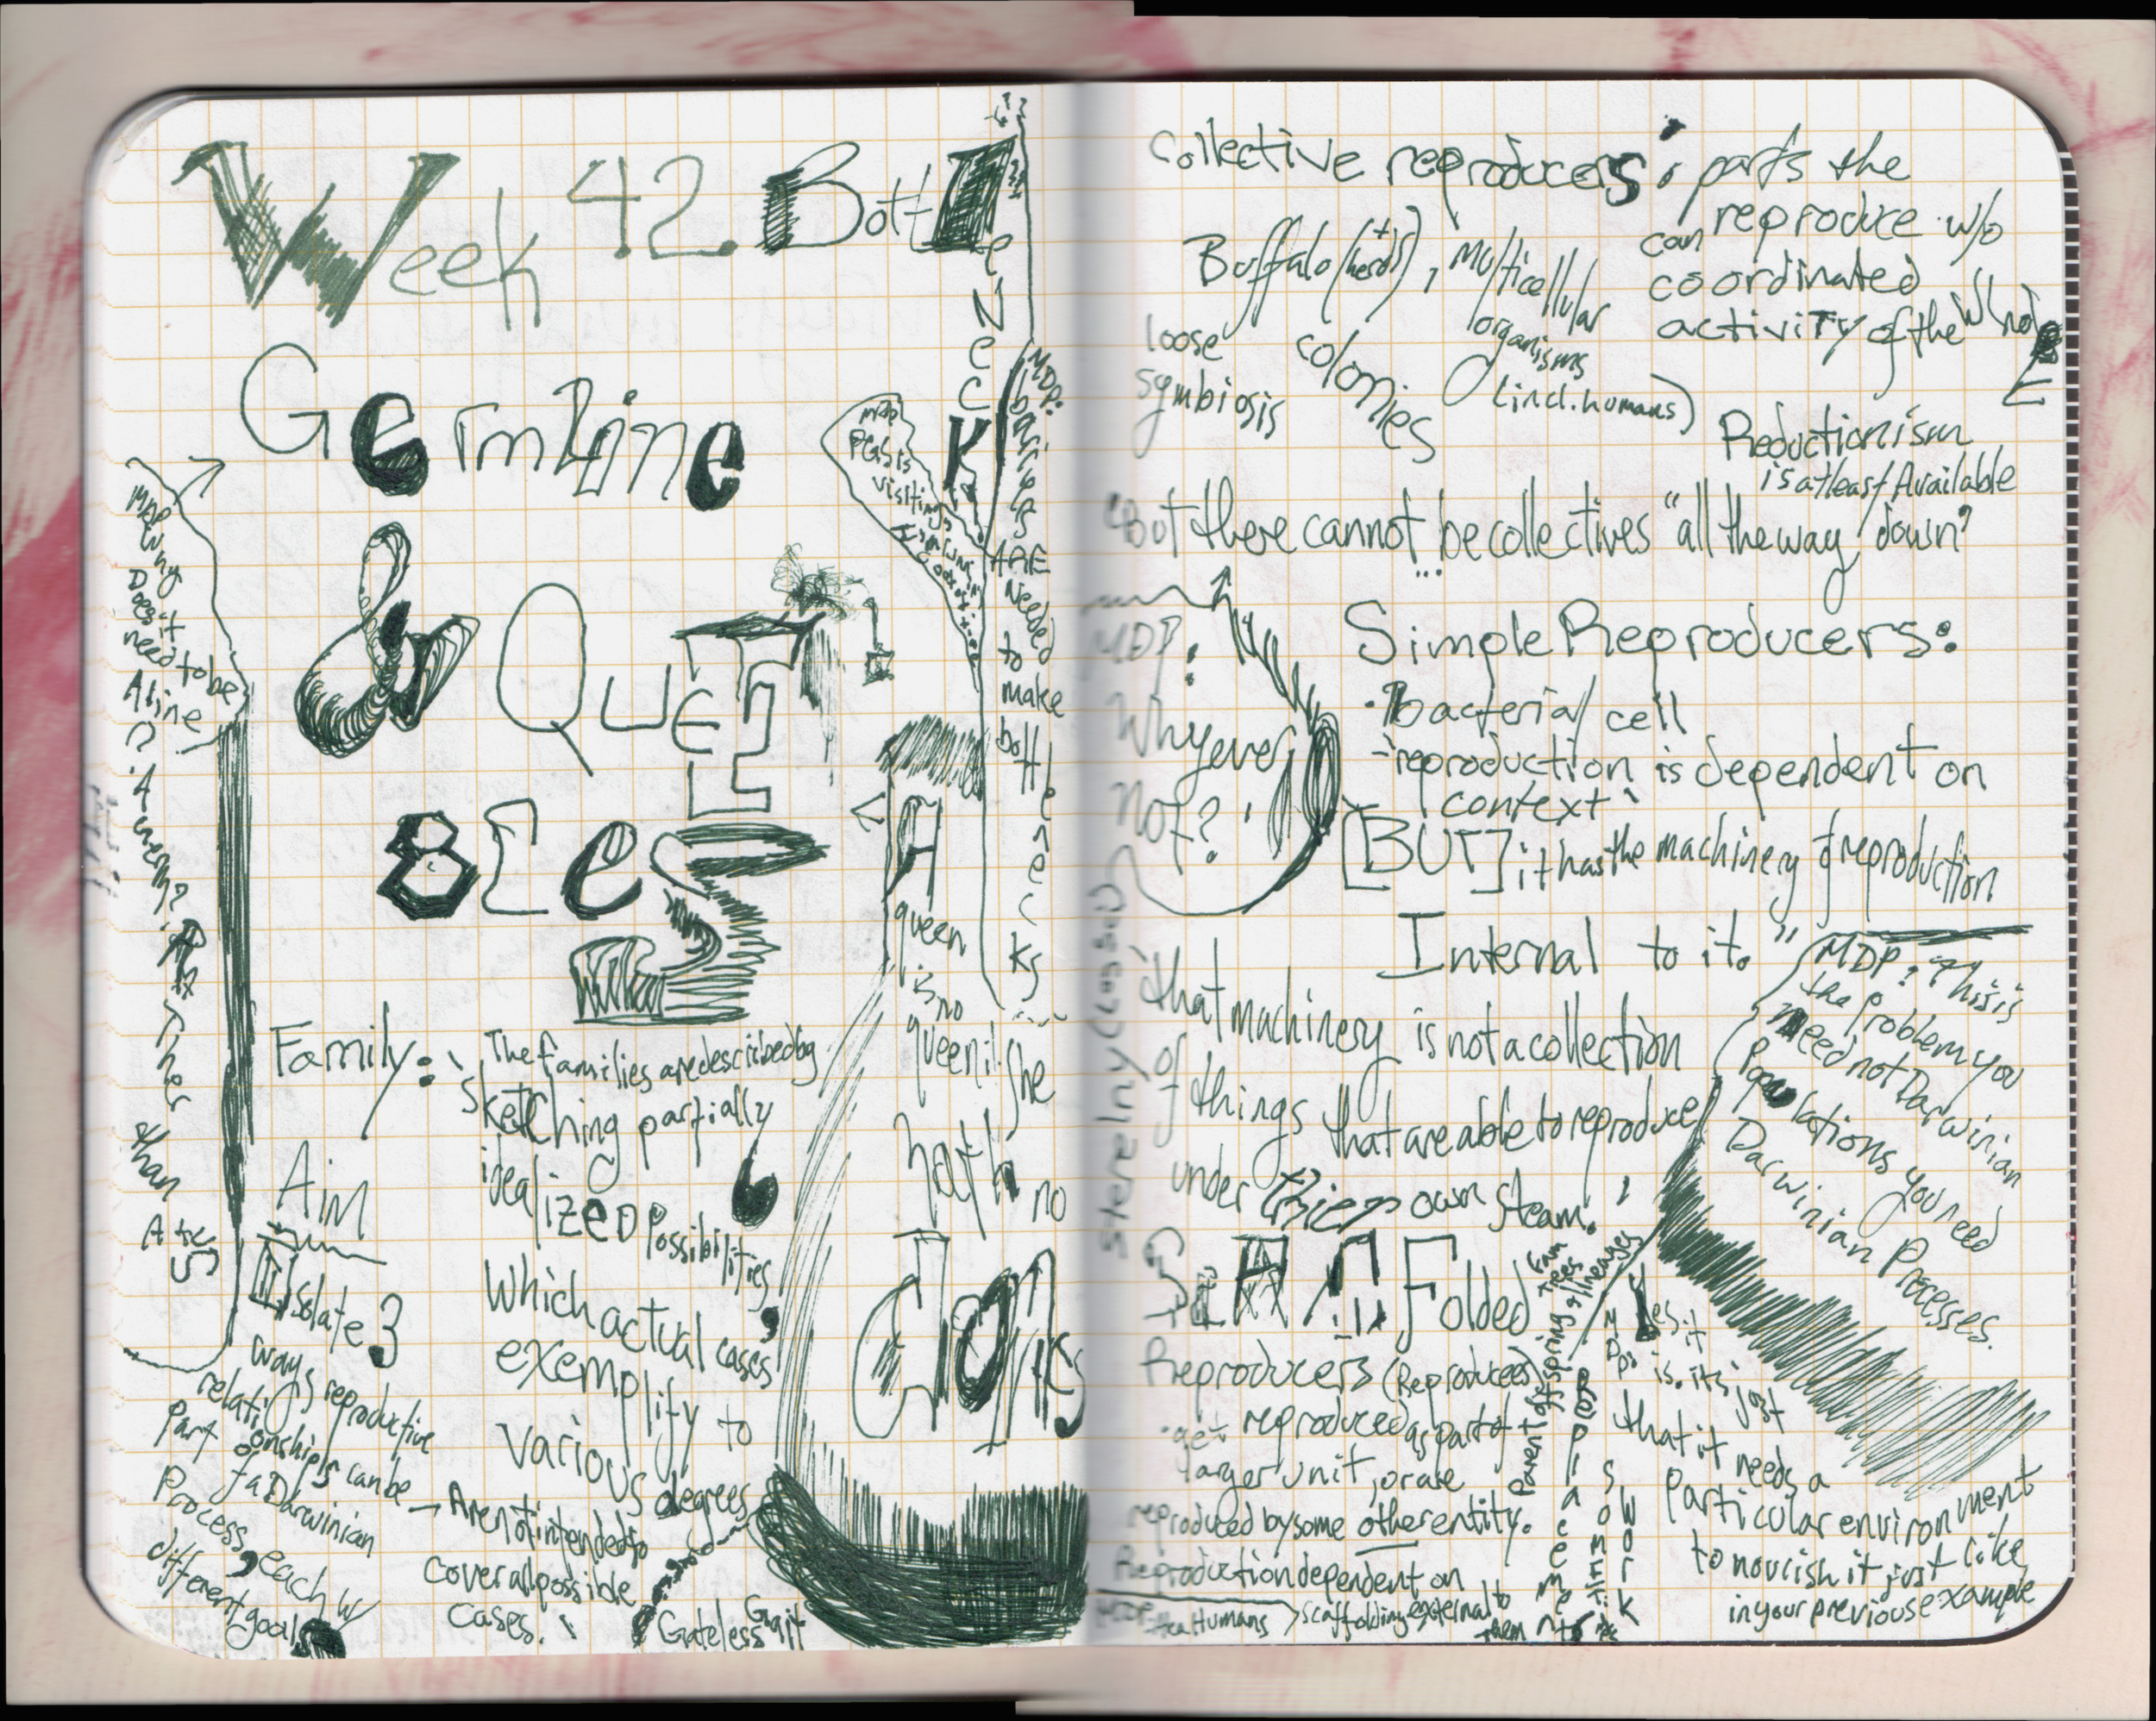 Week 42. Bottle Neck
Germline
& Queen
Bees
MDP: Why
Does it
need to be
A line
? A worm?
Rather
than
A tree
MDP:
PGS is
visiting
MDP:
barriers
ARE
Needed
to
make
bottlenecks
A
queen
is no
queen if she
hath no
Family:
The families are described by
sketching partially
idealized possibilities,
which actual cases
exemplify to
various degrees
- Are not intended to
cover all possible
cases.
Gateless Gait
Aim
Isolate 3
ways reproductive
relationships can be
part of a Darwinian
Process, each w/
different goals
Collective reproducers: parts the
can reproduce w/o
coordinated
activity of the whole
Buffalo (herds), multicellular
organisms
(incl. humans)
loose
symbiosis
colonies
Reductionism
is at least Available
"But there cannot be collectives "all the way down"
...
MDP:
Why ever
not?
Simple Reproducers:
· bacterial cell
- reproduction is dependent on
context
[BUT] it has the machinery of reproduction
Internal to it."
Sterelny
that machinery is not a collection
of things that are able to reproduce
under thier own steam.
MDP: This is
the problem you
need not Darwinian
Populations you need
Darwinian Processes.
Scaffolded
Reproducers (Reproducees)
· get reproduced as part of
larger unit, or are
reproduced by some other entity.
Reproduction dependent on
scaffolding external to
them
MDP: Yes it
is. it's just
that it needs a
particular environment
to nourish it just like
in your previous example